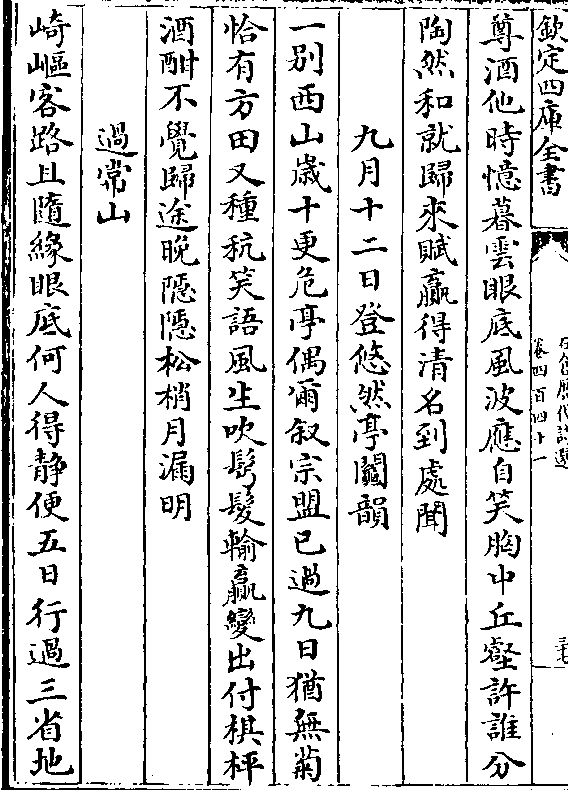 欽定四庫全書
卷四百四十一
尊酒他時憶暮雲眼底風波應自笑胸中丘壑許誰分
陶然和就歸來賦贏得清名到處聞
九月十二日登悠然亭鬮韻
一别西山歲十更危亭偶爾叙宗盟已過九日猶無菊
恰有方田又種秔笑語風生吹鬢髮輸贏變出付棋枰
酒酣不覺歸途晚隱隱松梢月漏明
過常山
崎嶇客路且隨緣眼底何人得静便五日行過三省地